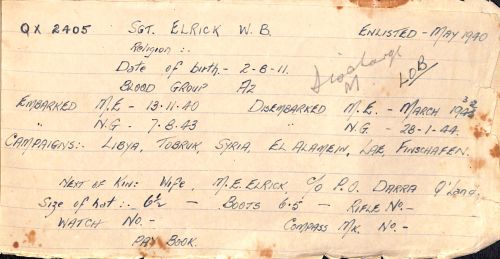 QX 2405 SGT. ELRICK W. B. ENLISTED - MAY 1940
Religion :-
Date of birth - 2-8-11. Discharge
BLOOD GROUP A2 M LOB
EMBARKED M.E. - 13-11-40 DISEMBARKED M.E. - MARCH 1943
" N.G. - 7-8-43 " N.G. - 28-1-44.
CAMPAIGNS:- LIBYA, TOBRUK, SYRIA, EL ALAMEIN, LAE, FINSCHAFEN.
NEXT OF KIN: Wife, M.E. ELRICK, C/o P.O. DARRA Q'Land.
Size of hat :- 6½ - BOOTS 6·5 - RIFLE No -
WATCH No. - COMPASS MK. No. -
PAY BOOK.